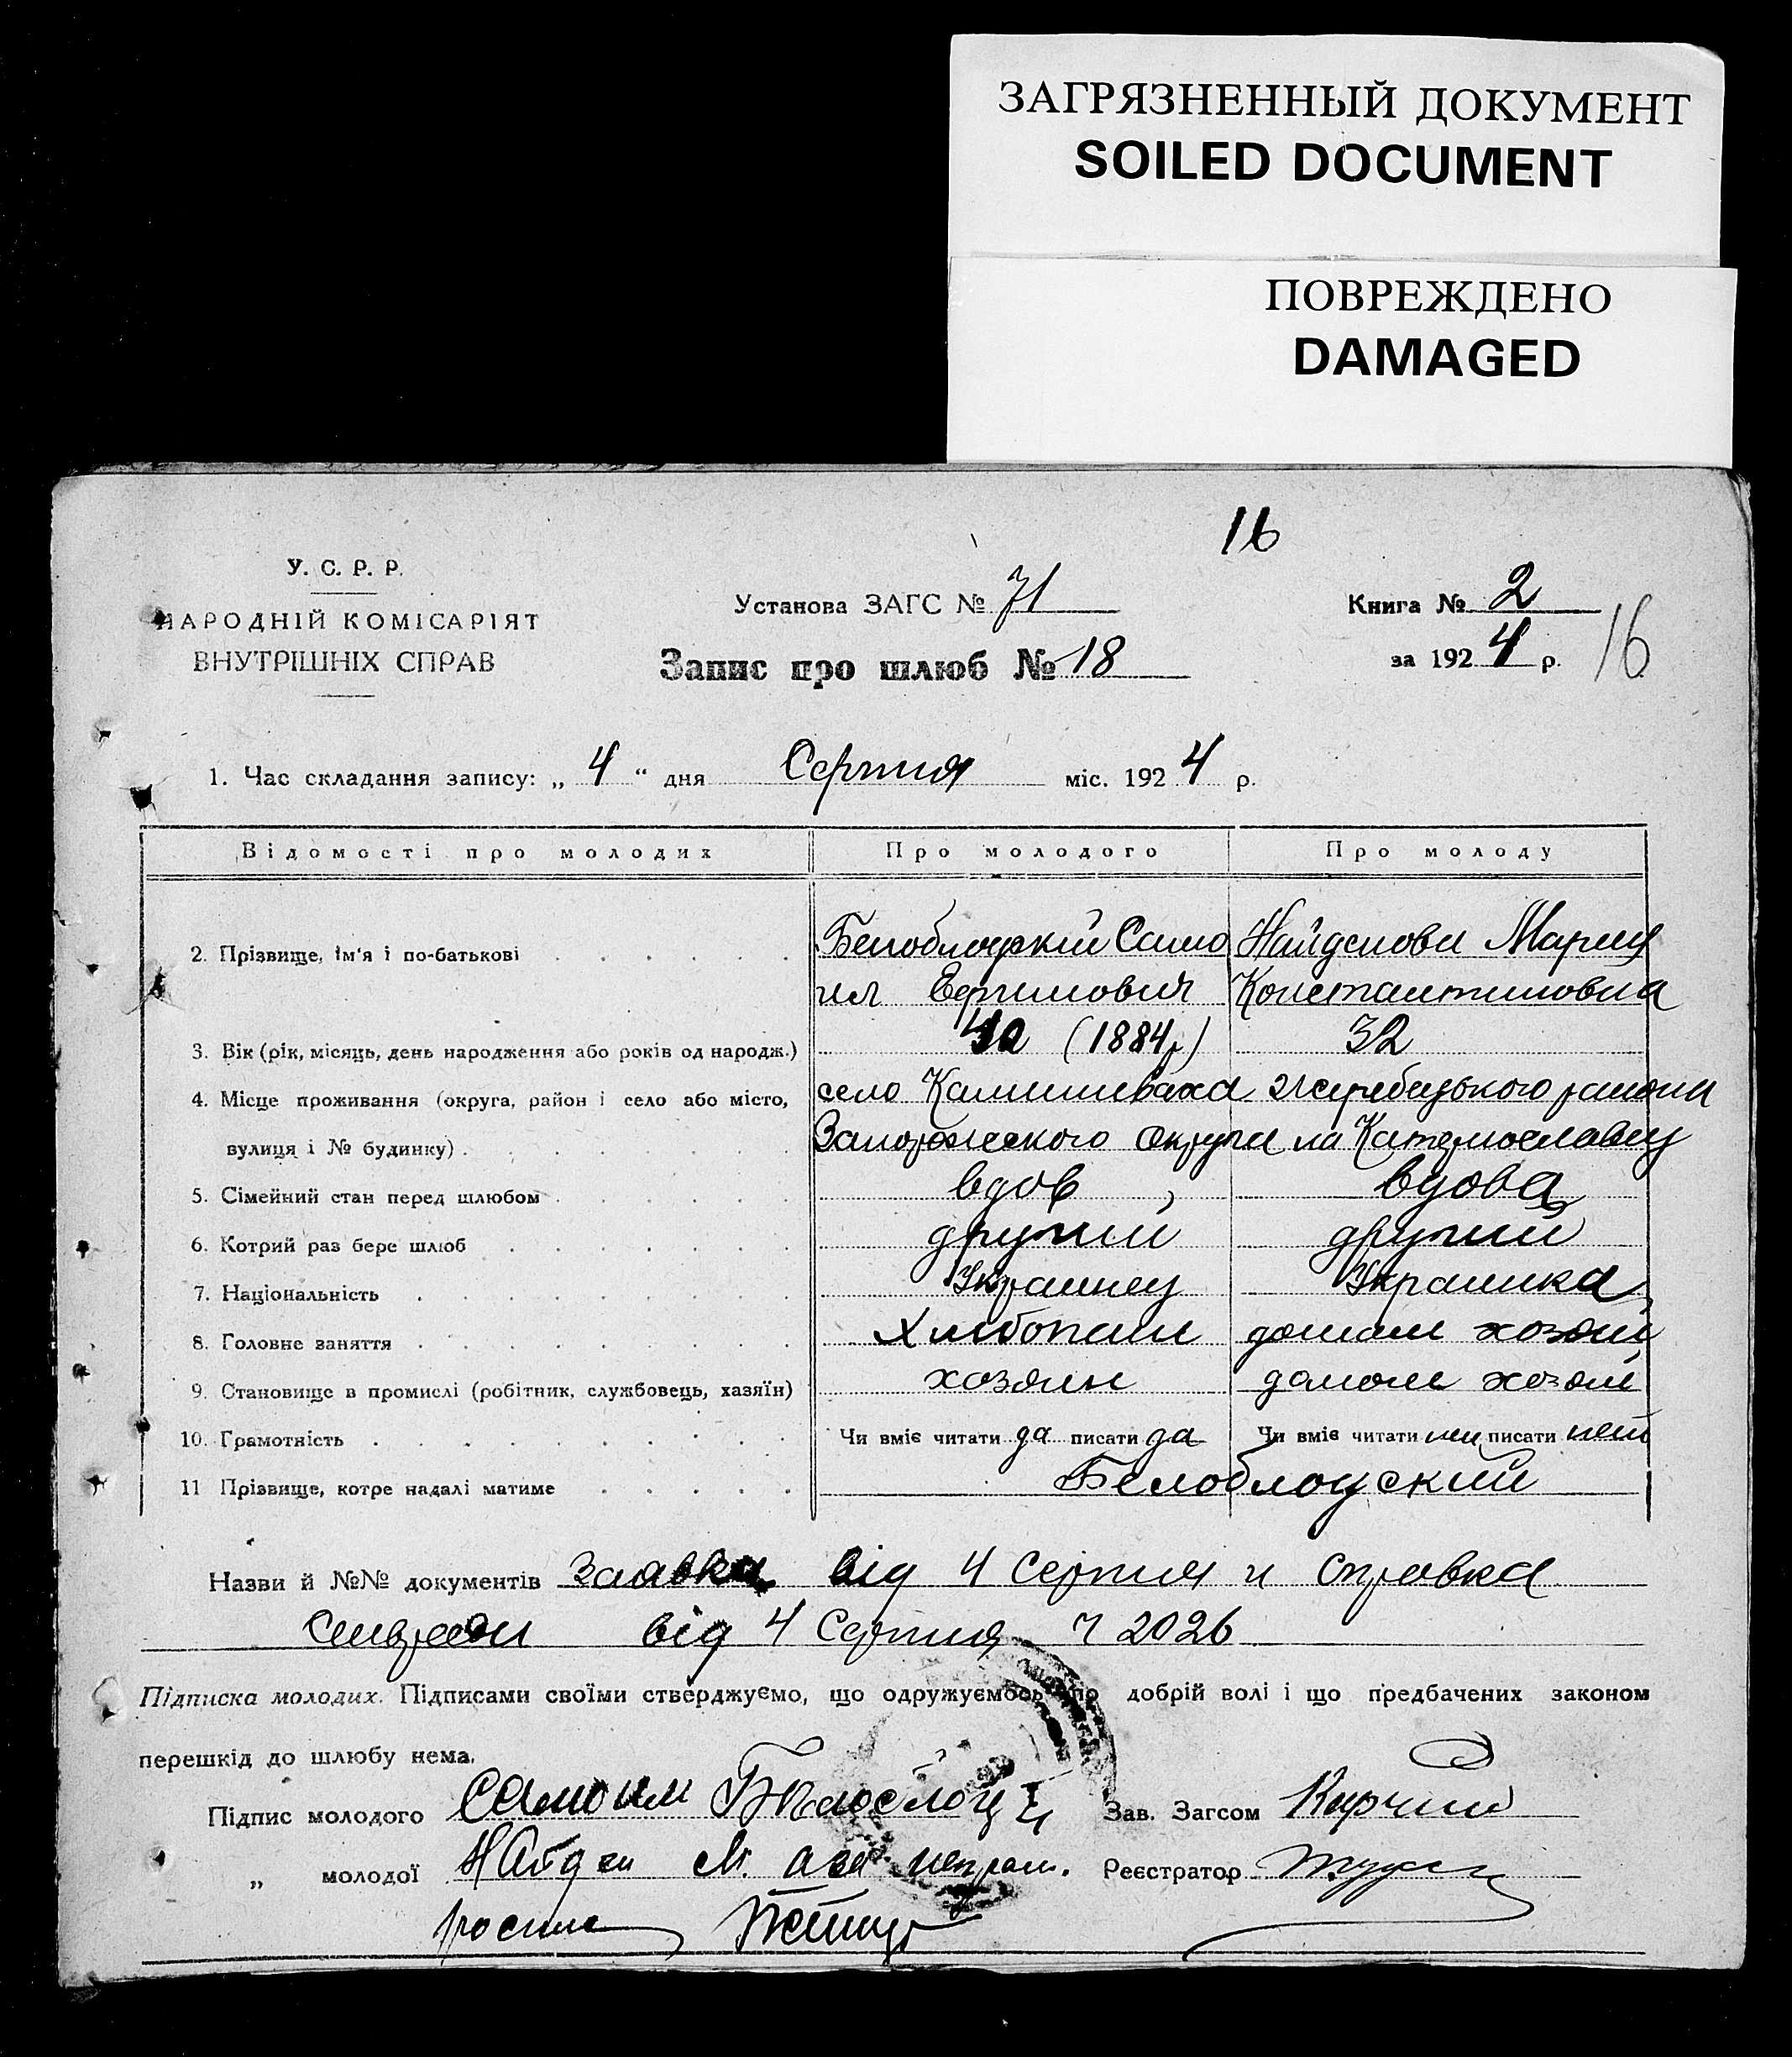 ЗАГРЯЗНЕННЫЙ ДОКУМЕНТ
SOILED DOCUMENT
ПОВРЕЖДЕНО
DAMAGED
16
У. С. Р. Р.
НАРОДНІЙ КОМІСАРІЯТ
ВНУТРІШНІХ СПРАВ
Установа ЗАГС № 71
Книга № 2
Запис про шлюб № 18
за 1924 р.
16
1. Час складання запису: „ 4 “ дня Серпня міс. 1924 р.
Відомості про молодих Про молодого Про молоду
2. Прізвище, ім'я і по-батькові Белоблоцкій Само Найденова Мария
ил Ефимович Константиновна
3. Вік (рік, місяць, день народження або років од народж.) 40 (1884р) 32
4. Місце проживання (округа, район і село або місто, село Камишеваха Жеребецького района
вулиця і № будинку) Запорожского Округи на Катеринославщ
5. Сімейний стан перед шлюбом вдов вдова
6. Котрий раз бере шлюб другий другий
7. Національність Украинец Украинка
8. Головне заняття Хлибопаш домаш хозяй
9. Становище в промислі (робітник, службовець, хазяїн) хозяин домаш хозяй
10. Грамотність Чи вміє читати да писати да Чи вміє читати нет писати нет
11 Прізвище, котре надалі матиме Белоблоцский
Назви й №№ документів Заявка від 4 Серпня и справка
від 4 Серпня ч 2026
Підписка молодих. Підписами своїми стверджуємо, що одружуємось по добрій волі і що предбачених законом
перешкід до шлюбу нема.
Підпис молодого Самоил Зав. Загсом
„ молодої Найден М. а за неграм. Реєстратор